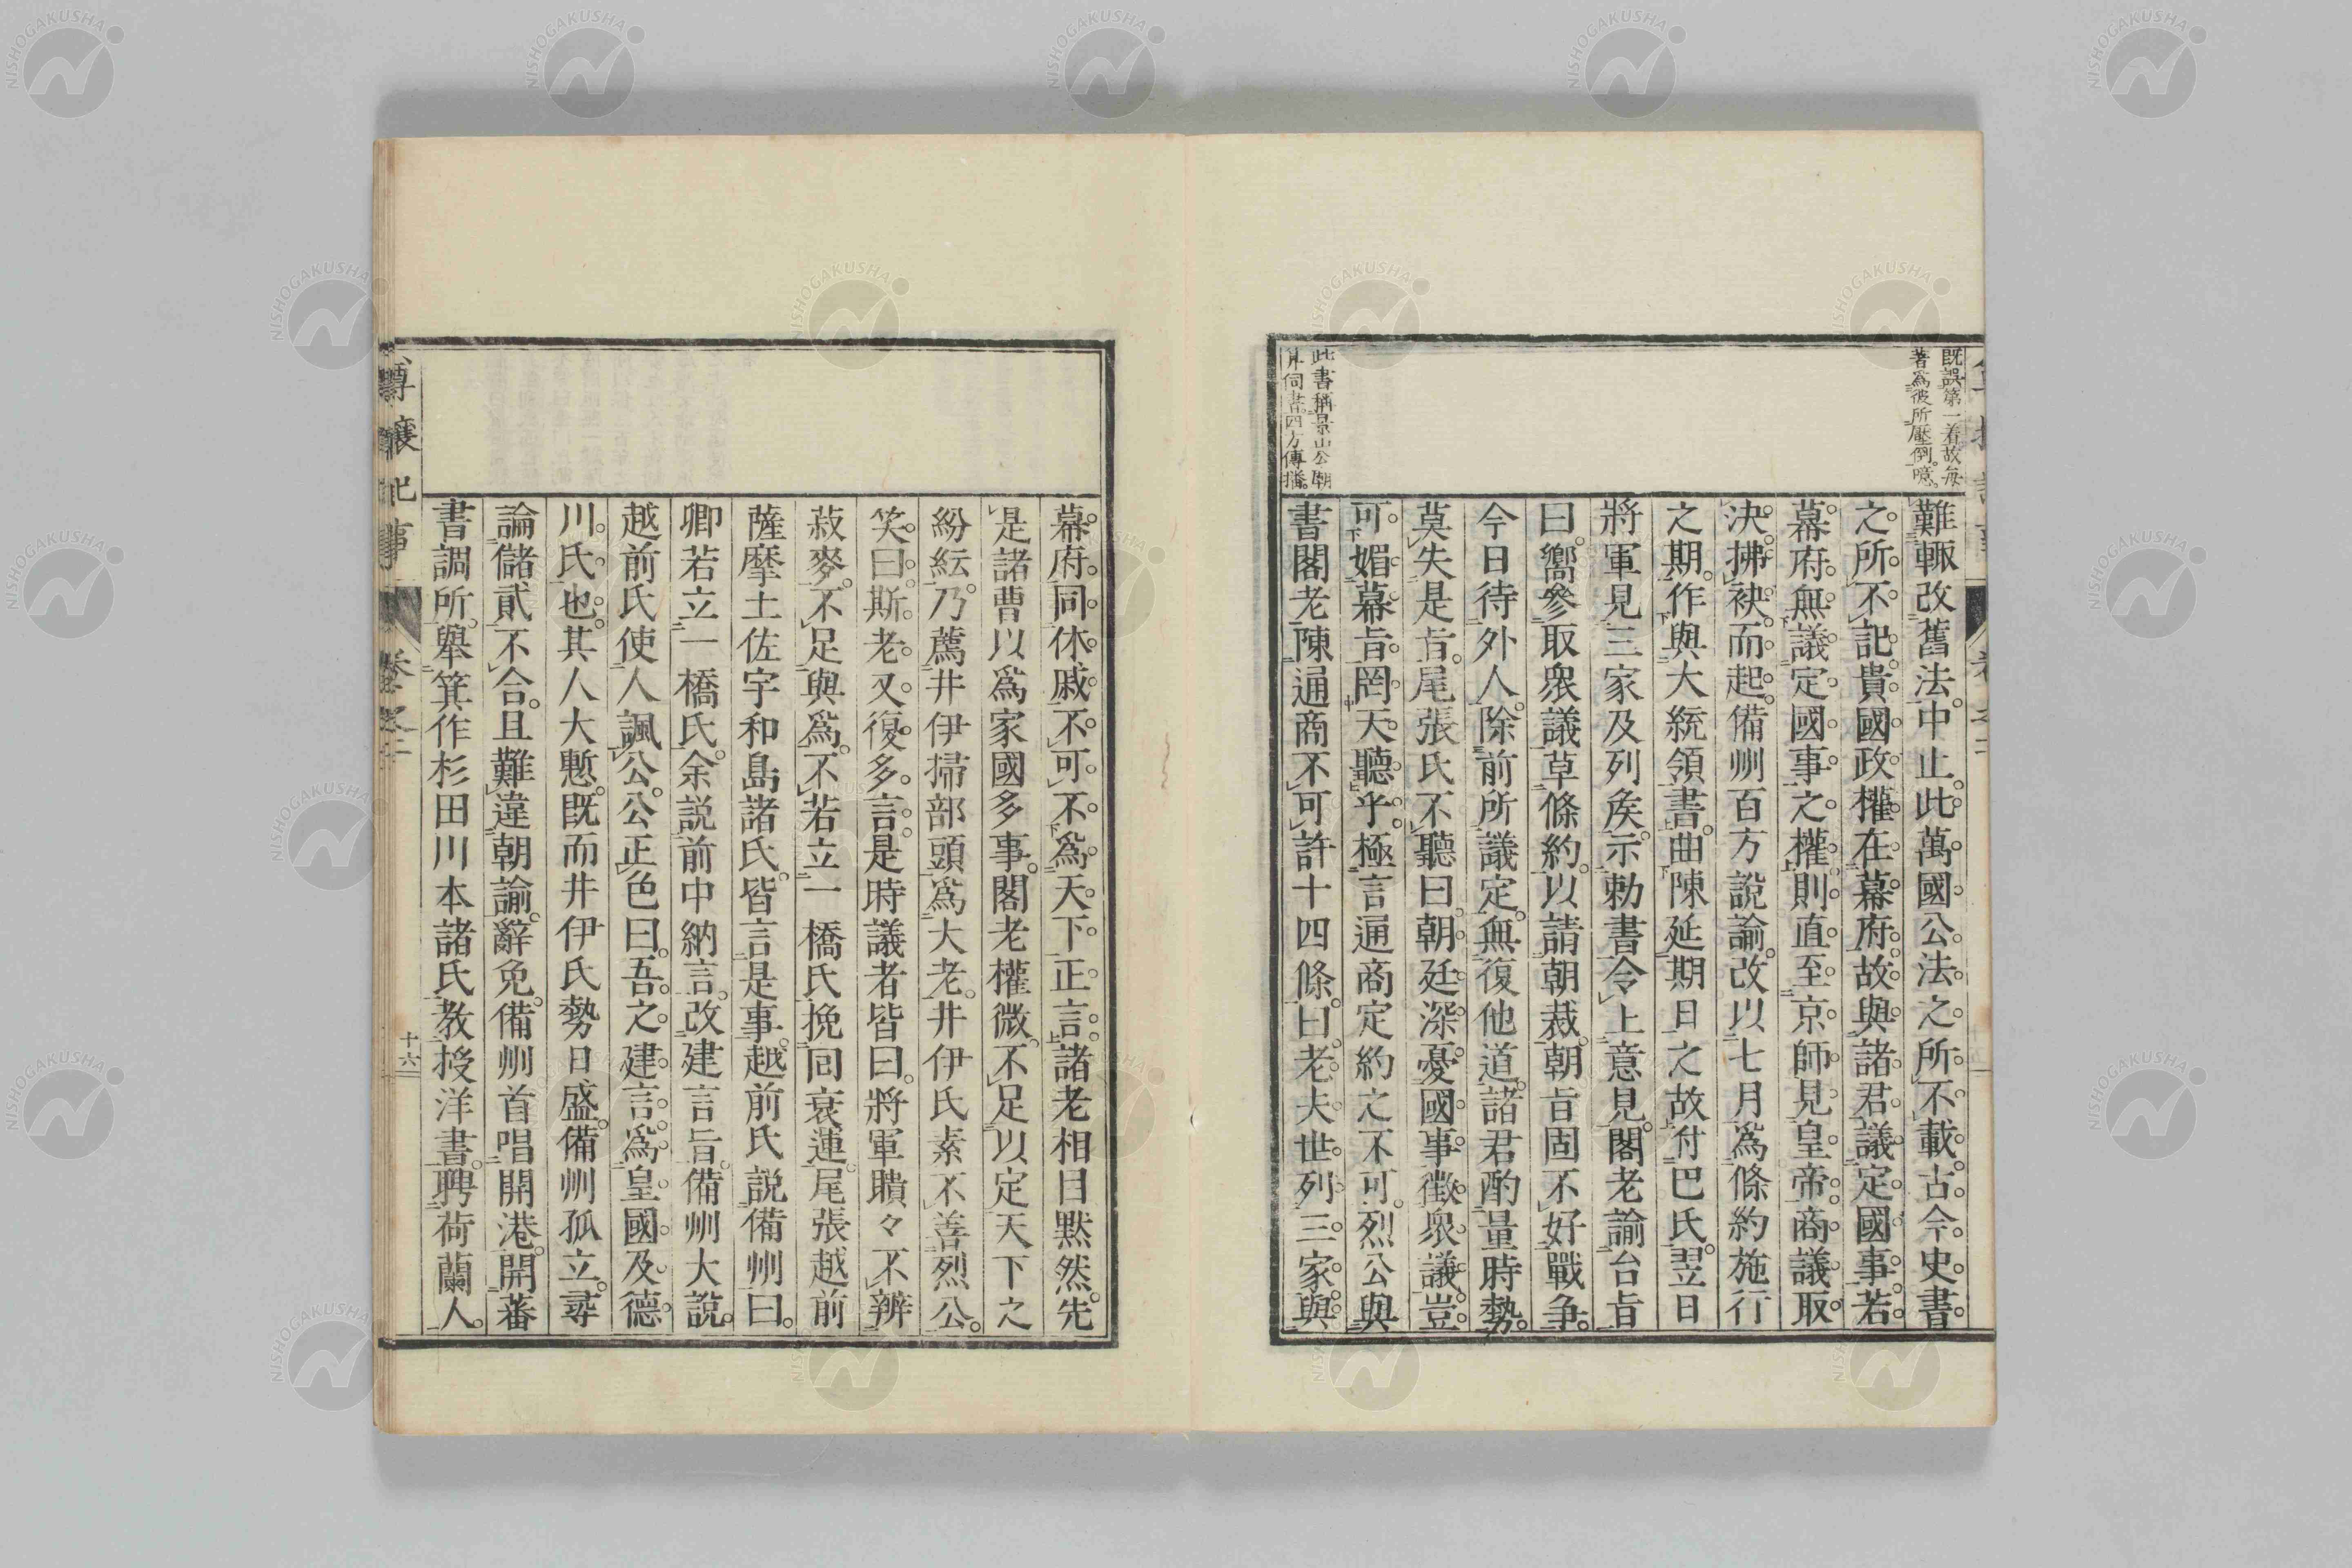 既誤第一着故每
著爲彼所壓倒。噫。
難輙改舊法。中止。此萬國公法之所不載。古今史書
之所不記。貴國政權在幕府。故與諸君議定國事。若
幕府無議定國事之權。則直至京師見皇帝商議取
決。拂袂而起。備州百方說諭。改以七月爲條約施行
之期。作與大統領書。曲陳延期日之故付巴氏。翌日
將軍見三家及列矦。示勅書令上意見。閣老諭台旨
曰。嚮參取衆議草條約。以請朝裁。朝旨固不好戰爭。
今日待外人。除前所議定。無復他道。諸君酌量時勢。
莫失是旨。尾張氏不聽曰。朝廷深憂國事徵衆議。豈
可媚幕旨。罔天聽乎。極言通商定約之不可。烈公與
書閣老陳通商不可許十四條。曰。老夫世列三家。與
此書稱景山公朝
幕府。同休戚。不可不爲天下正言。諸老相目默然。先
是諸曹以爲家國多事。閣老權微。不足以定天下之
紛紜。乃薦井伊掃部頭爲大老。井伊氏素不善烈公。
笑曰。斯老又復多言。是時議者皆曰。將軍聵々不辨
菽麥。不足與爲。不若立一橋氏挽回衰運。尾張越前
薩摩土佐宇和島諸氏。皆言是事。越前氏說備州曰。
卿若立一橋氏。余說前中納言。改建言旨。備州大說。
越前氏使人諷公。公正色曰。吾之建言。爲皇國及德
川氏也。其人大慙。既而井伊氏勢日盛。備州孤立。尋
論儲貳不合。且難違朝諭。辭免。備州首唱開港。開蕃
書調所。舉箕作杉田川本諸氏教授洋書。聘荷蘭人。
尊攘紀事
卷之二
十六
NISHOGAKUSHA